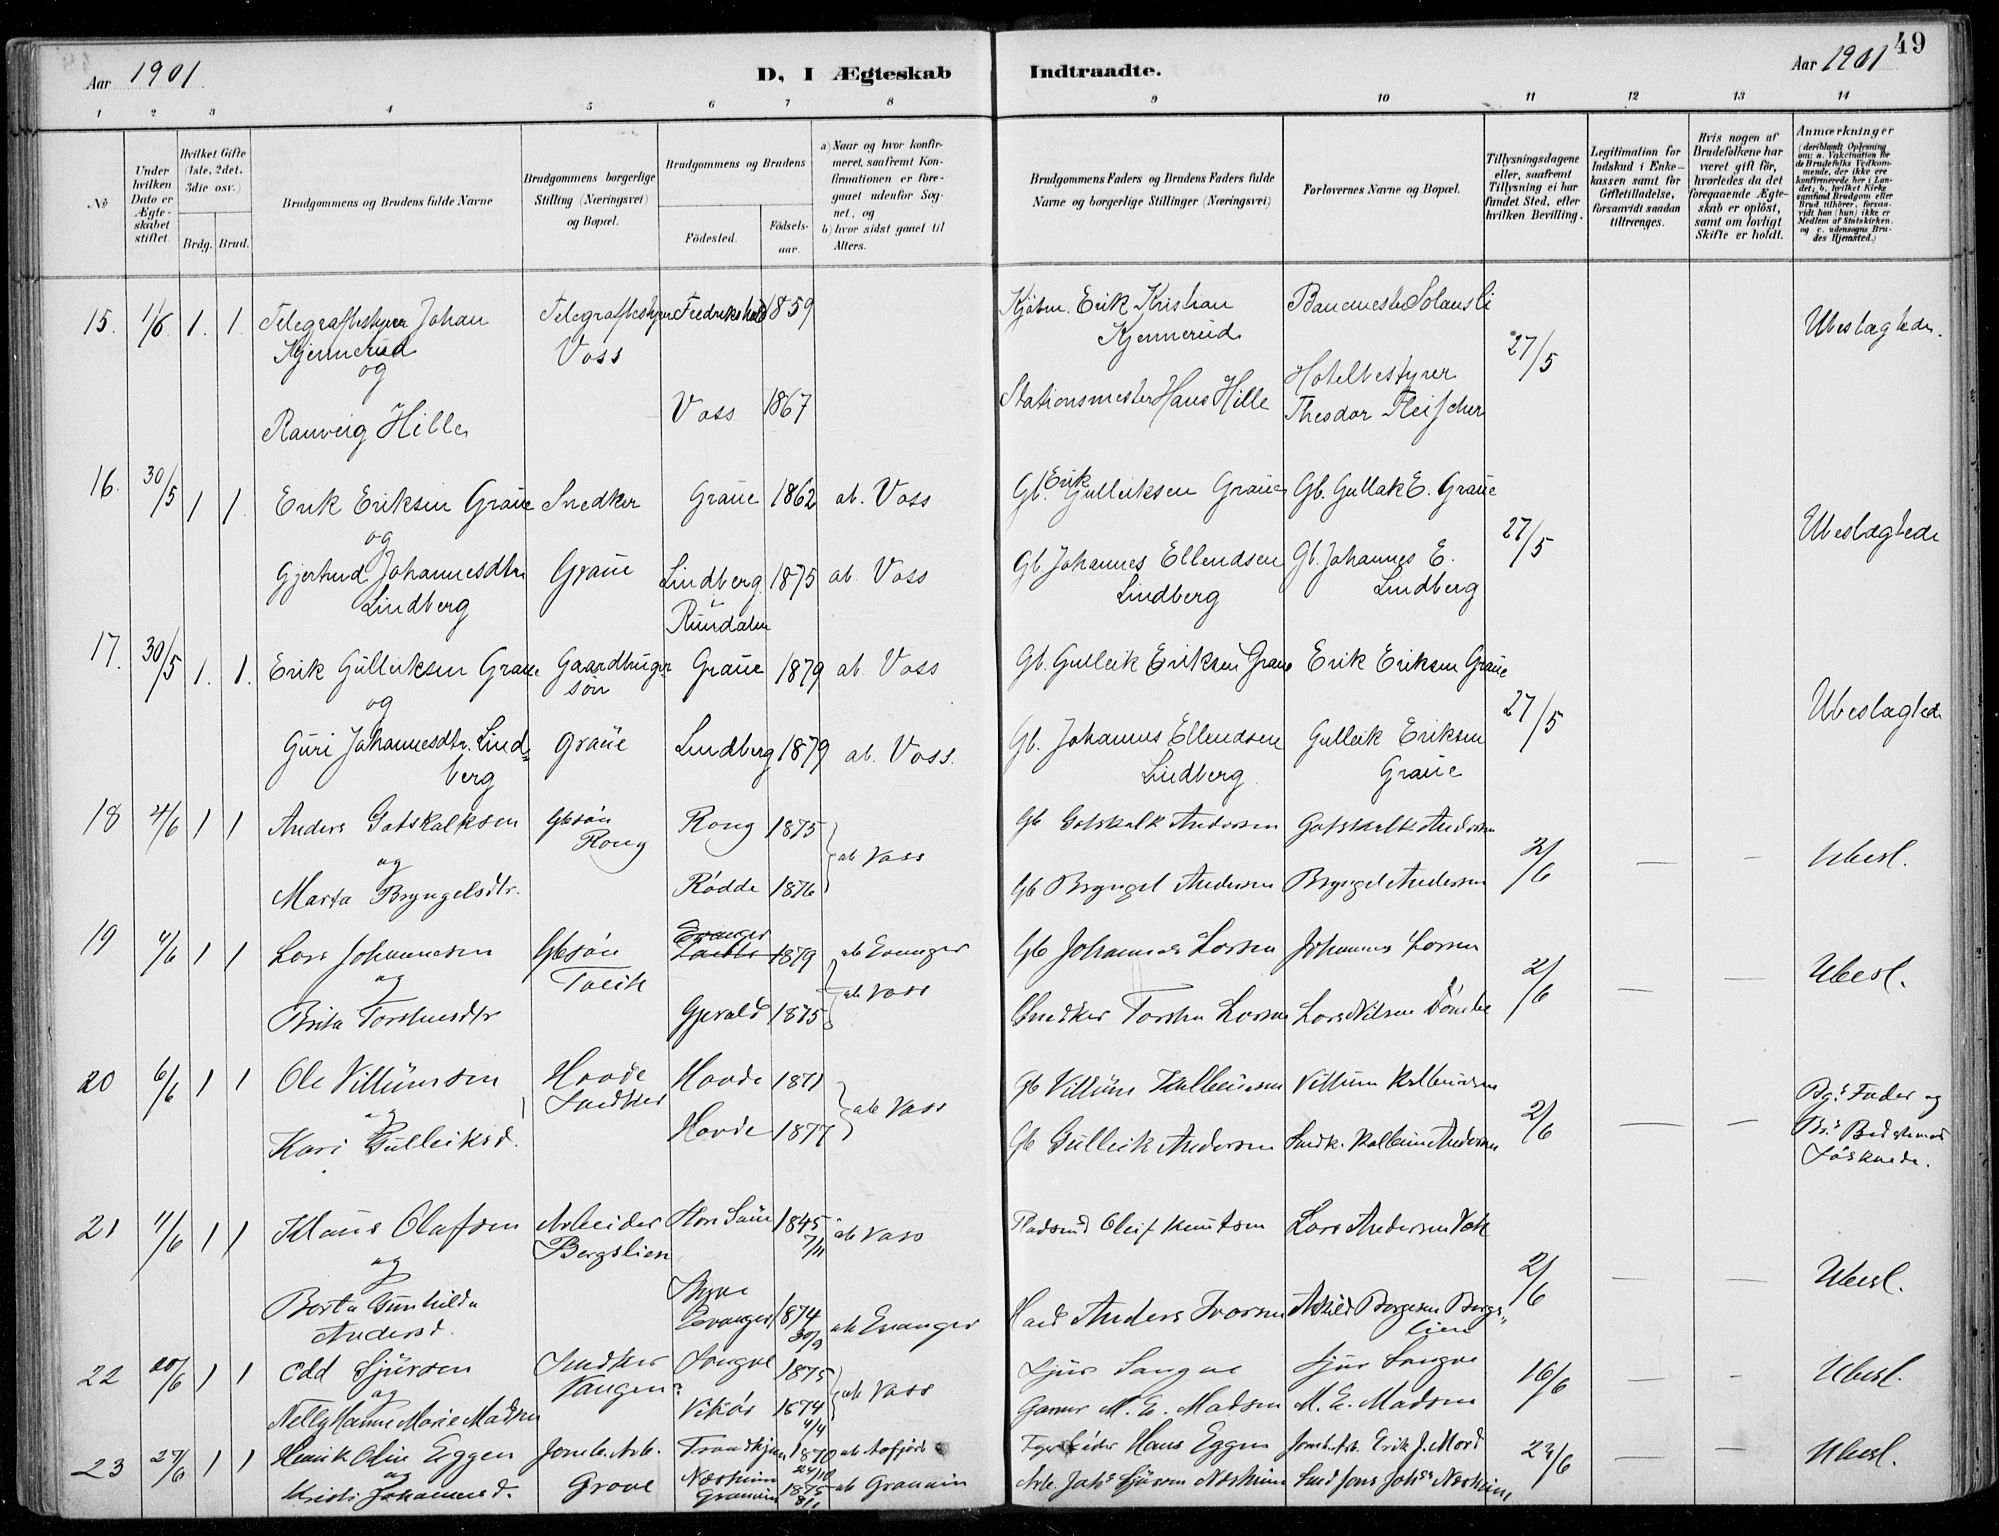 Aar 1901
D, I Ægteskab
Indtraadte.
Aar 1901
49
1 2 3 4 5 6 7 8 9 10 11 12 13 14
No
Under hvilken Dato er Ægte-skabet stiftet.
Hvilket Gifte (1ste, 2det, 3die osv.)
Brdg. Brud.
Brudgommens og Brudens fulde Navne
Brudgommens borgerlige Stilling (Næringsvei) og Bopæl.
Brudgommens og Brudens
Fødested. Fødsels-aar.
a) Naar og hvor konfir-meret, saafremt Kon-firmationen er fore-gaaet udenfor Sog-net, og
b) hvor sidst gaaet til Alters.
Brudgommens Faders og Brudens Faders fulde Navne og borgerlige Stillinger (Næringsvei)
Forlovernes Navne og Bopæl.
Tillysningsdagene eller, saafremt Tillysning ei har fundet Sted, efter hvilken Bevilling.
Legitimation for Indskud i Enke-kassen samt for Giftetilladelse, forsaavidt saadan tiltrænges.
Hvis nogen af Brudefolkene har været gift før, hvorledes da det foregaaende Ægte-skab er opløst, samt om lovligt Skifte er holdt.
Anmærkninger (deriblandt Oplysning om: a. Vakcination for de Brudefolks Vedkom-mende, der ikke ere konfirmerede her i Lan-det; b. hvilket Kirke samfund Brudgom eller Brud tilhører, forsaa-vidt han (hun) ikke er Medlem af Statskirken, og c. udensogns Bru-des Hjemsted.)
15. 1/6 1. 1. Telegrafbestyrer Johan Telegrafbestyrer Fredrikshald 1859 Kjøbm. Erik Kristian Banemester Solansli
Kjennerud Voss Kjennerud 27/5 Ubeslægtede.
og
Ranveig Hille Voss 1867 Stationsmester Hans Hille Hotelbestyrer
Theodor Fleischer
16. 30/5 1 1. Erik Eriksen Graue Snedker Graue 1862 ab. Voss Gb. Erik Gulleiksen Graue Gb. Gullak E. Graue
og 27/5 Ubeslægtede
Gjertrud Johannesdtr. Graue Lindberg 1875 ab. Voss Gb Johannes Ellendsen Gb. Johannes E.
Lindberg Rundalen Lindberg Lindberg
17. 30/5 1. 1. Erik Gulleiksen Graue Gaardbruger Graue 1879 ab Voss Gb. Gulleik Eriksen Graue Erik Eriksen Graue
og søn 27/5 Ubeslægtede
Guri Johannesdtr. Lind- Graue Lindberg 1879 ab. Voss. Gb. Johannes Ellendsen Gulleik Eriksen
berg Lindberg Graue
18 4/6 1 1 Anders Gotskalksen Gbsøn Rong 1875 Gb Gotskalk Andersen Gotskalk Andersen
og Rong ab Voss 2/6 — — Ubesl.
Marta Bryngelsdtr. Rødde 1876 Gb Bryngel Andersen Bryngel Andersen
19 4/6 1 1 Lars Johannesen Gbsøn Evanger 1879 ab Evanger Gb Johannes Larsen Johannes Larsen
og ab Voss 2/6 — — Ubesl.
Brita Torstensdtr Gjerald 1875 Snedker Torsten Larsen Lars Nilsen
20 6/6 1 1 Ole Villumsen Hovde Hovde 1871 Gb Villum Kolbeinsen Villum Kolbeinsen
og Snedker ab Voss 2/6 — — Bgs Fader og
Kari Gulleiksd. Hovde 1877 Gb Gulleik Andersen Snedk. Kolbein Andersen Søskende.
21 11/6 1 1 Klaus Olafsen Arbeider 1845 ab Voss Pladsmd Oleif Knutsen Lars Andersen
og Bergslien 7/11 2/6 — — Ubesl.
Berta Gunhilda Evanger 1874 ab Evanger Anders Ivarsen Askild Børgesen Bergs-
Andersd. lien
22 20/6 1 1 Odd Sjursen Snedker 1875 Sjur Sjur
og Vangen ab Voss 16/6 — — Ubesl.
Nelly Hanne Marie Madsen Vikør 1874 4/4 Garver M. E. Madsen M. E. Madsen
23 27/6 1 1 Henrik Olin Eggen Jernb. Arb. Trondhjem 1870 ab Aafjord Hans Eggen Jernb. Arb. Erik J. Mord
og Grove Næsheim 24/10 23/6 — Ubesl.
Kristi Johannesd. Granvin 1875 8/1 ab Granvin Arb. Johs Sjursen Næsheim Smed Jons Johs Næsheim